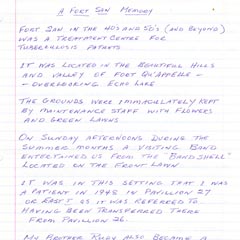 A FORT SAN MEMORY
FORT SAN IN THE 40'S AND 50'S (AND BEYOND)
WAS A TREATMENT CENTRE FOR
TUBERCULOSIS PATIENTS.
IT WAS LOCATED IN THE BEAUTIFUL HILLS
AND VALLEY OF FORT QU'APPELLE -
- OVERLOOKING ECHO LAKE
THE GROUNDS WERE IMMACULATELY KEPT
BY MAINTENANCE STAFF WITH FLOWERS
AND GREEN LAWNS
ON SUNDAY AFTERNOONS DURING THE
SUMMER MONTHS A VISITING BAND
ENTERTAINED US FROM THE "BAND SHELL"
LOCATED ON THE FRONT LAWN.
IT WAS IN THIS SETTING THAT I WAS
A PATIENT IN 1948 IN PAVILLION 27
OR EAST 1 AS IT WAS REFERRED TO...
HAVING BEEN TRANSFERRED THERE
FROM PAVILION 26.
MY BROTHER RUDY ALSO BECAME A